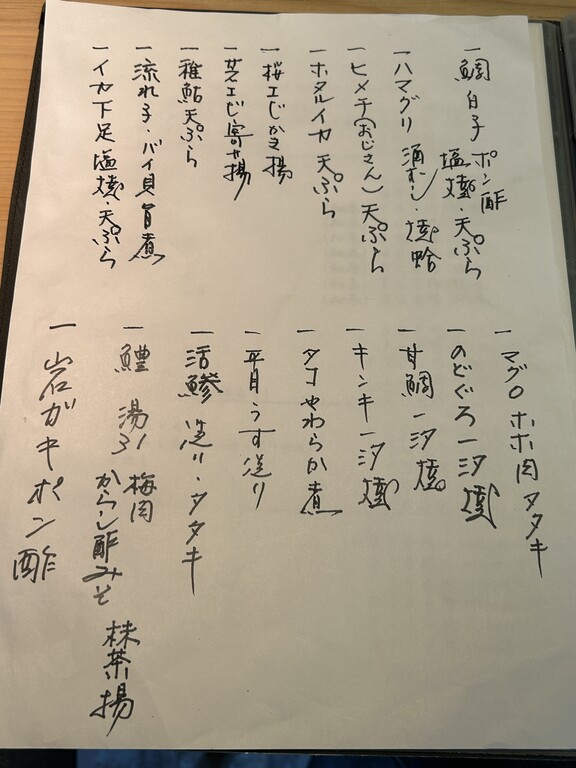 一 鯛白子 ポン酢
塩焼・天ぷら
一 ハマグリ 酒むし・焼蛤
一 ヒメチ(おじさん)天ぷら
一 ホタルイカ 天ぷら
一 桜エビかき揚
一 芝エビ寄せ揚
一 稚鮎天ぷら
一 流れ子・バイ貝 旨煮
一 イカ下足 塩焼・天ぷら
一 マグロ ホホ肉 タタキ
一 のどぐろ一汐焼
一 甘鯛一汐焼
一 キンキ一汐焼
一 タコやわらか煮
一 平目うす造り
一 活鯵 造り・タタキ
一 鱧 湯引 梅肉
からし酢みそ 抹茶揚
一 岩ガキポン酢